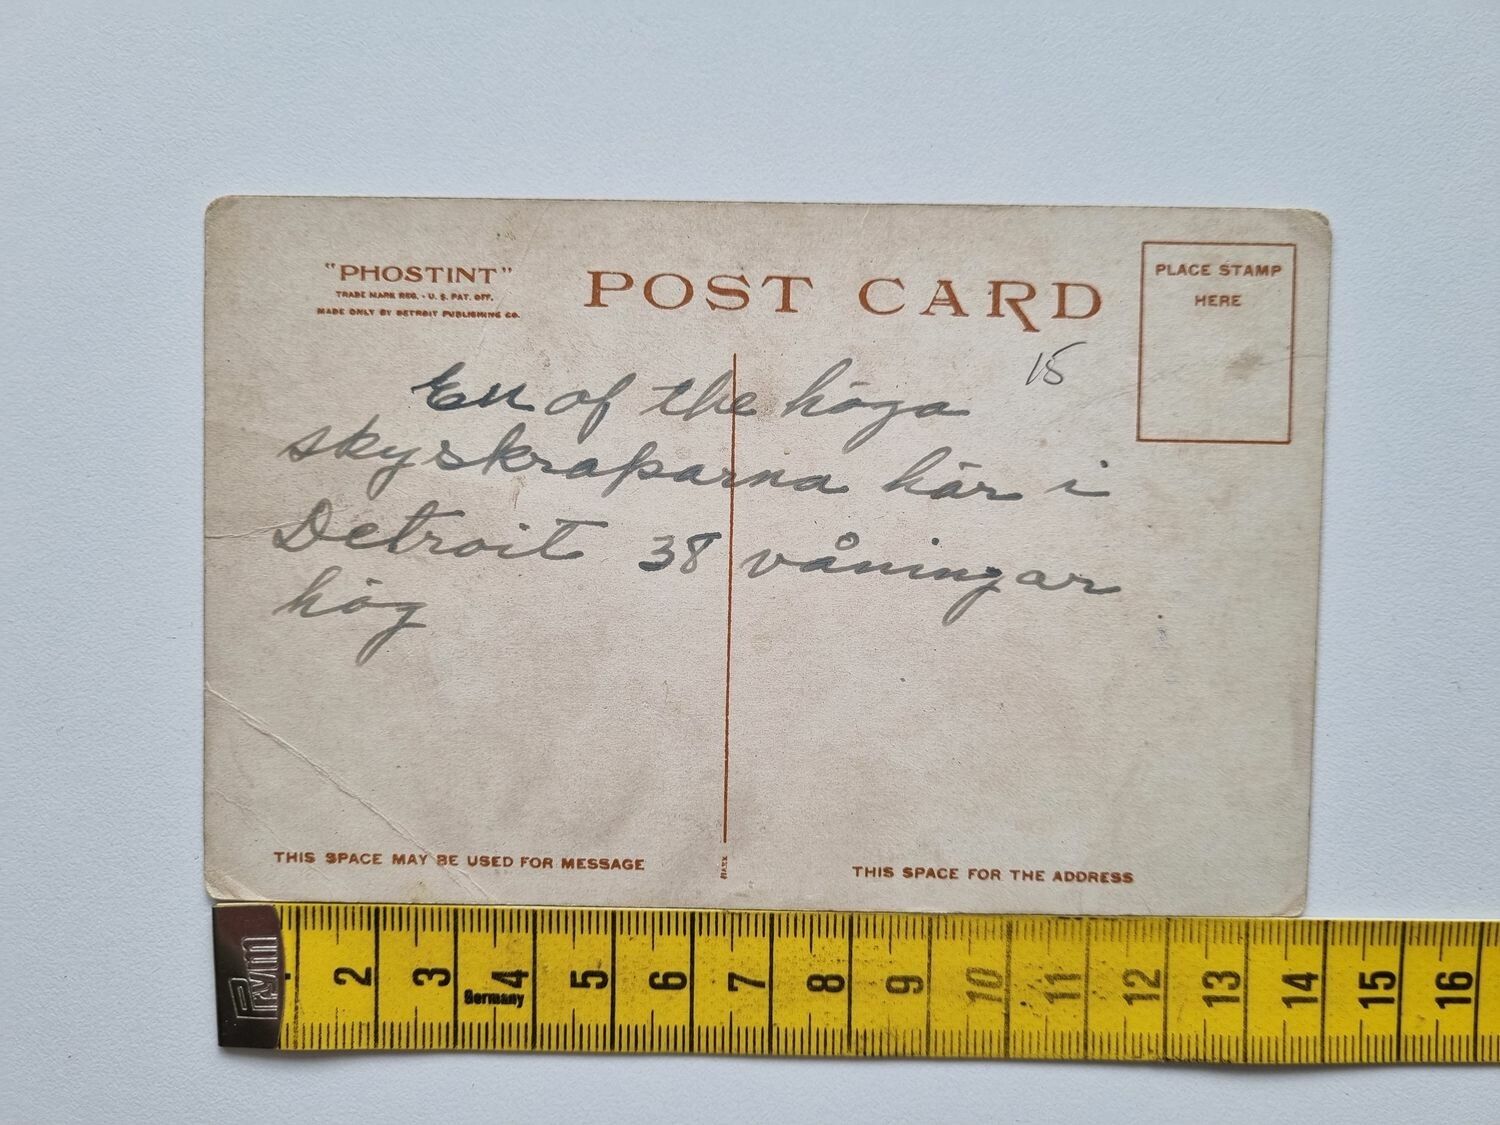 "PHOSTINT"
TRADE MARK REG. - U. S. PAT. OFF.
MADE ONLY BY DETROIT PUBLISHING CO.
POST CARD
PLACE STAMP
HERE
15
En of the höga
skyskraparna här i
Detroit 38 våningar
hög
THIS SPACE MAY BE USED FOR MESSAGE
THIS SPACE FOR THE ADDRESS
Prym
2 3 4 5 6 7 8 9 10 11 12 13 14 15 16
Germany